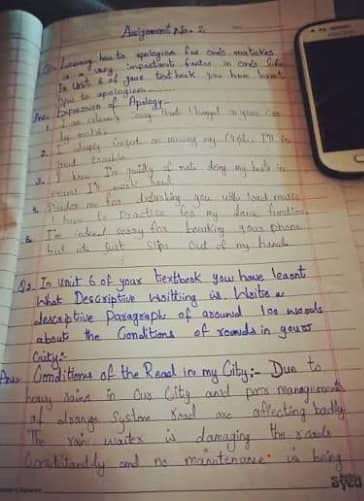 Assignment No. 2
Q1. Learning how to apologise for one's mistakes
is a very important factor in one's life
In Unit 6 of your text book you have learnt
how to apologise.
Ans: Expression of Apology:-
1. I am extremely sorry that I hunged you
by mistake.
2. I deeply regret on missing my I'll in
trouble.
3. I know I'm guilty of not doing my best in
exams I'll work hard
4. Pardon me for disturbing you with loud music
I have to practice for my dance function.
5. I'm indeed sorry for breaking your phone
but its just slips out of my hands
Q2. In unit 6 of your textbook you have learnt
what Descriptive writting is. Write a
descriptive Paragraph of around 100 words
about the Conditons of rounds in your
City:-
Ans: Conditions of the Road in my City:- Due to
heavy rains in Our City and poor management
of drange System Road are affecting badly.
The rain waiter is damaging the roads
Constitantdly and no maintenance is being